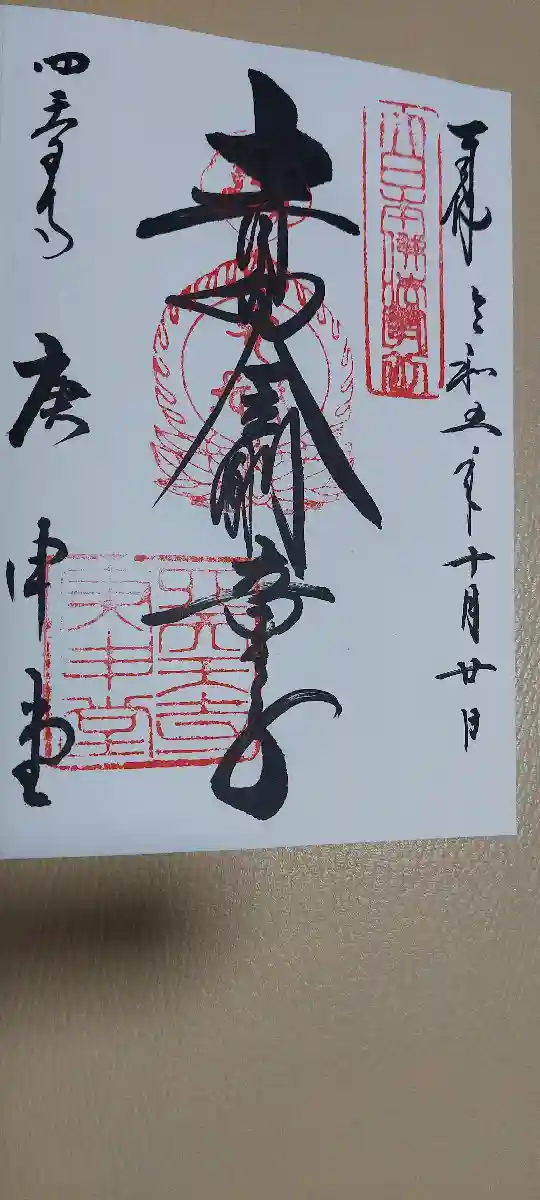 奉拝 令和五年十月廿日
大日本佛法最初
青面金剛童子
四天王寺 庚申堂
庚申堂